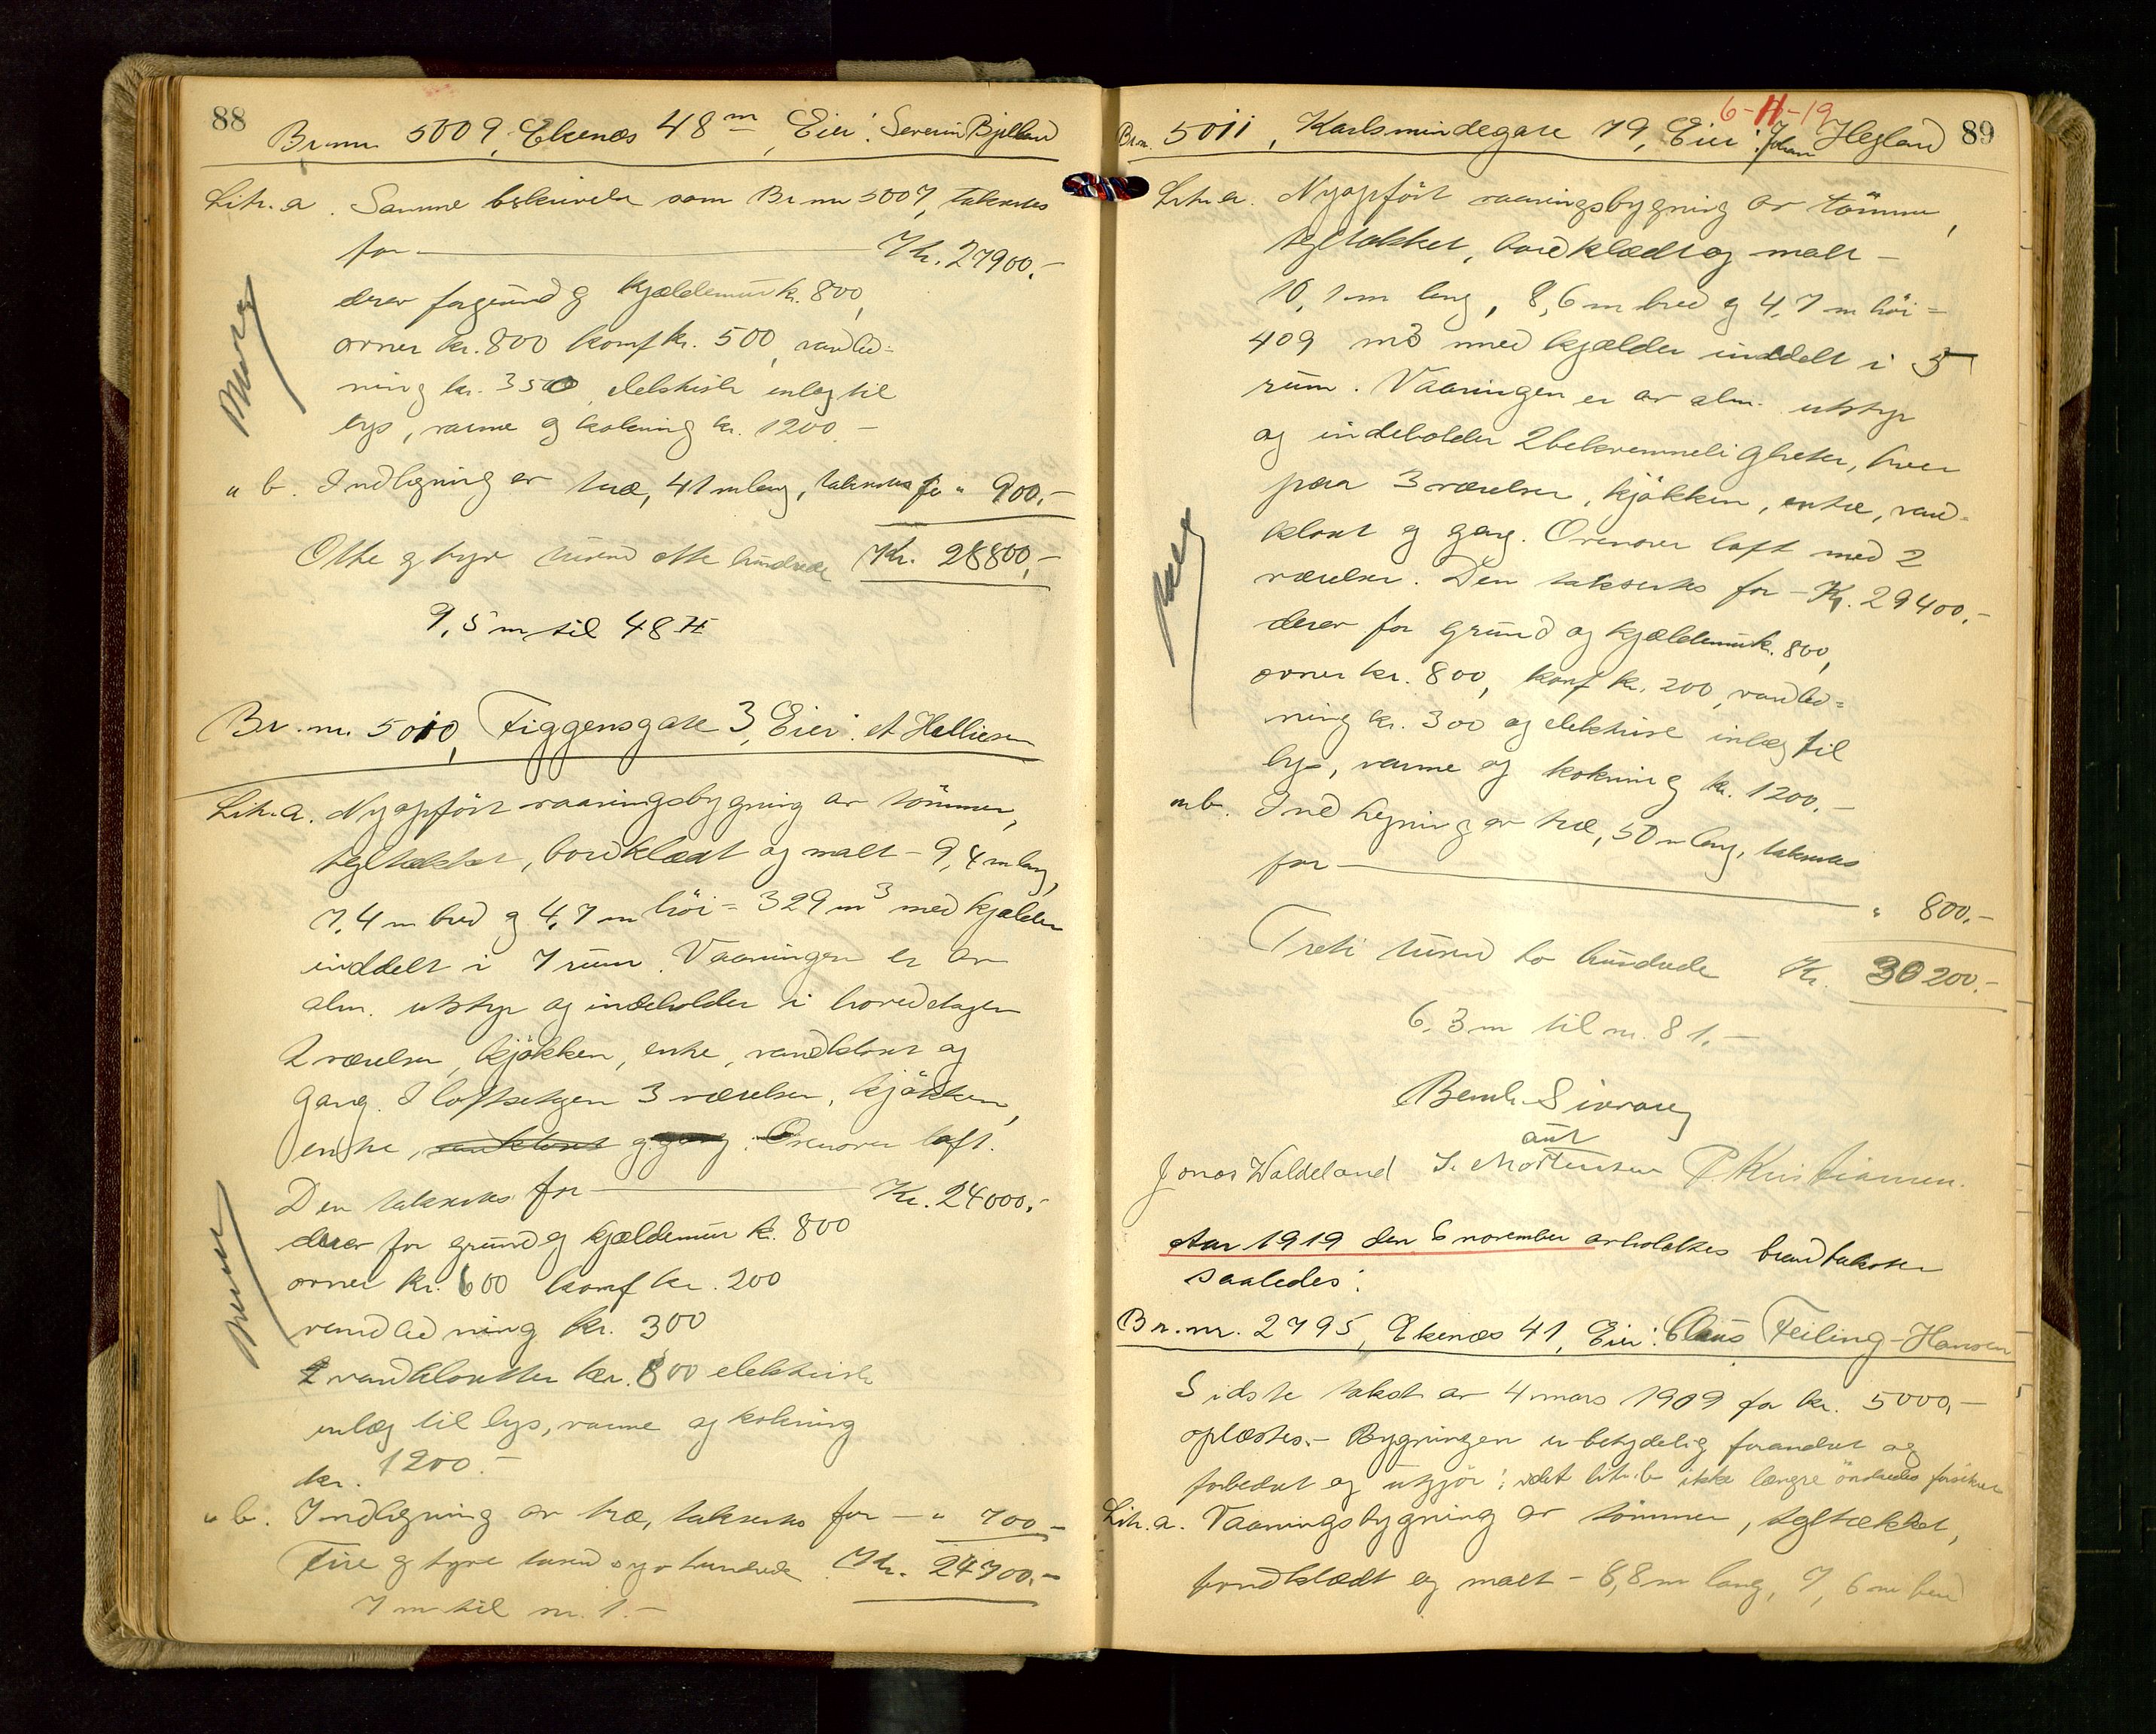 88
Br.nr. 5009, Ekenæs 48 m, Eier: Severin Bjelland
Litr. a. Samme beskrivelse som Br nr 5007, takseres
for Kr. 27900.-
derav for grund og kjældermur kr. 800,
ovner kr. 800 komf kr. 500, vandled=
ning kr. 350, elektrisk inlæg til
lys, varme og kokning kr. 1200.-
" b. Indhegning av træ, 41 m lang, takseres for " 900,-
Otte og tyve tusend otte hundrede Kr. 28800,-
9,5 m til 48 H
Br. nr. 5010, Figgensgate 3, Eier: A Helliesen
Litr. a. Nyopført vaaningsbygning av tømmer,
tegltækket, bordklædt og malt - 9,4 m lang,
7,4 m bred og 4,7 m høi = 329 m3 med kjælder
inddelt i 7 rum. Vaaningen er av
alm. utstyr og indeholder i hovedetagen
2 værelser, kjøkken, entre, vandklosset og
gang. I loftsetagen 3 værelser, kjøkken,
entre, vandklosset og gang. Ovenover loft.
Den takseres for Kr. 24000,-
derav for grund og kjældermur kr. 800
ovner kr. 600 komf kr. 200
vandledning kr. 300
2 vandklosetter kr. 800 elektrisk
inlæg til lys, varme og kokning
kr. 1200.-
" b. Indhegning av træ, takseres for - " 700,-
Fire og tyve tusend syv hundrede Kr. 24700,-
7 m til nr. 1.-
6-11-19
89
Br.nr. 5011, Karlsmindegate 79, Eier: Johan Hegland
Litr. a. Nyopført vaaningsbygning av tømmer,
tegltækket, bordklædt og malt -
10,1 m lang, 8,6 m bred og 4,7 m høi =
409 m3 med kjælder inddelt i 5
rum. Vaaningen er av alm. utstyr
og indeholder 2 bekvemmeligheter, hver
paa 3 værelser, kjøkken, entre, vand-
kloset og gang. Ovenover loft med 2
værelser. Den takseres for - Kr. 29400,-
derav for grund og kjældermur kr. 800,
ovner kr. 800, komf kr. 200, vandled=
ning kr. 300 og elektrisk inlæg til
lys, varme og kokning kr. 1200.-
" b. Indhegning av træ, 50 m lang, takseres
for " 800.-
Treti tusend to hundrede Kr. 30200.-
6,3 m til nr. 81.-
Bernh. Sivraag
aut
Jonas Waldeland S. Mortensen P Kristiansen.
Aar 1919 den 6 november avholdtes brandtakster
saaledes:
Br. nr. 2795, Ekenæs 41, Eier: Claus Feiling-Hansen
Sidste takst av 4 mars 1909 for kr. 5000,-
oplæstes.- Bygningen er betydelig forandret og
forbedret og utgjør: idet litr. b ikke længre ønskes forsikret
Litr. a. Vaaningsbygning av tømmer, tegltækket,
bordklædt og malt - 8,8 m lang, 7,6 m bred